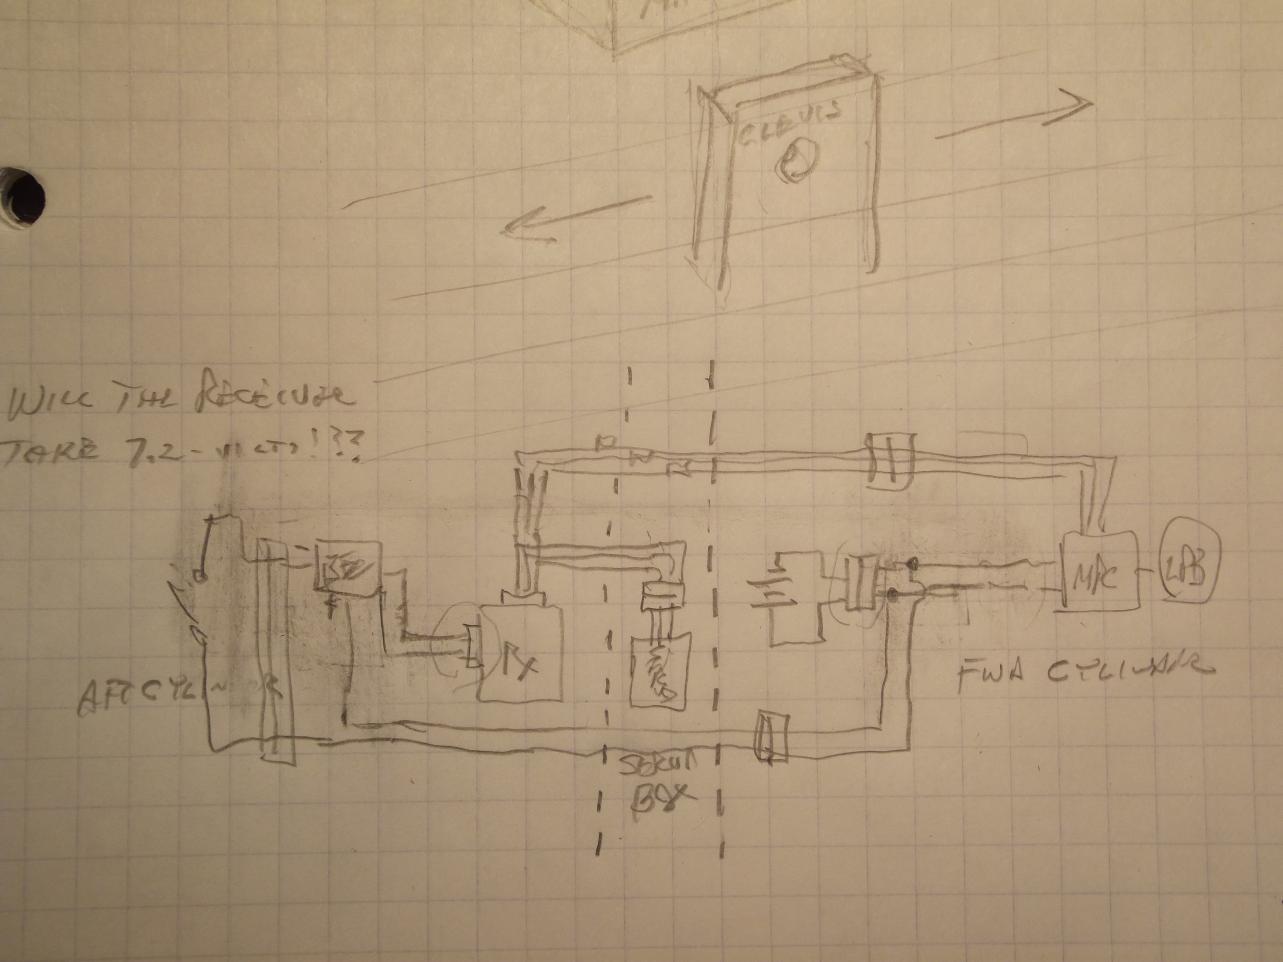 CLEVIS
WILL THE RECEIVER
TAKE 7.2-VOLTS!??
RX
AFT CYL
FWD CYLINDER
SERVO
BOX